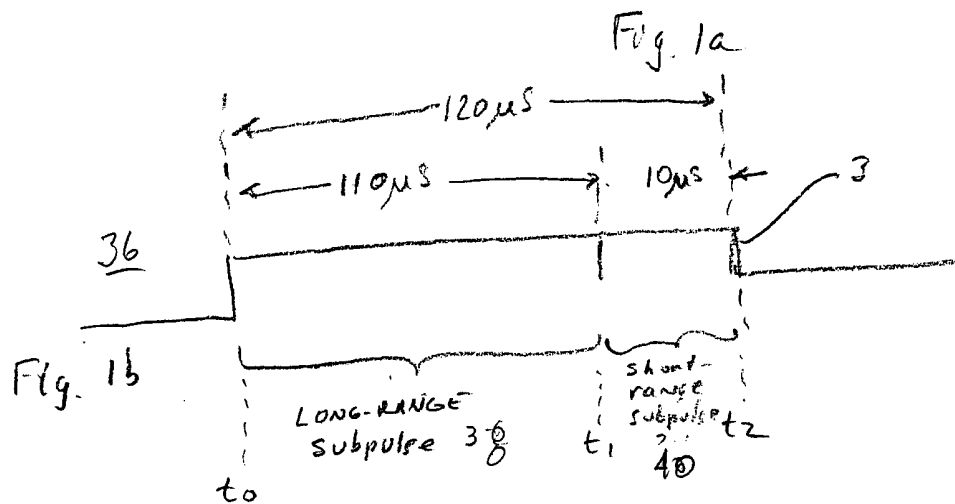 Fig. 1a
120μS
110μS
10μs
3
36
Fig. 1b
LONG-RANGE
subpulse 38
short-
range
subpulse
40
t0
t1
t2